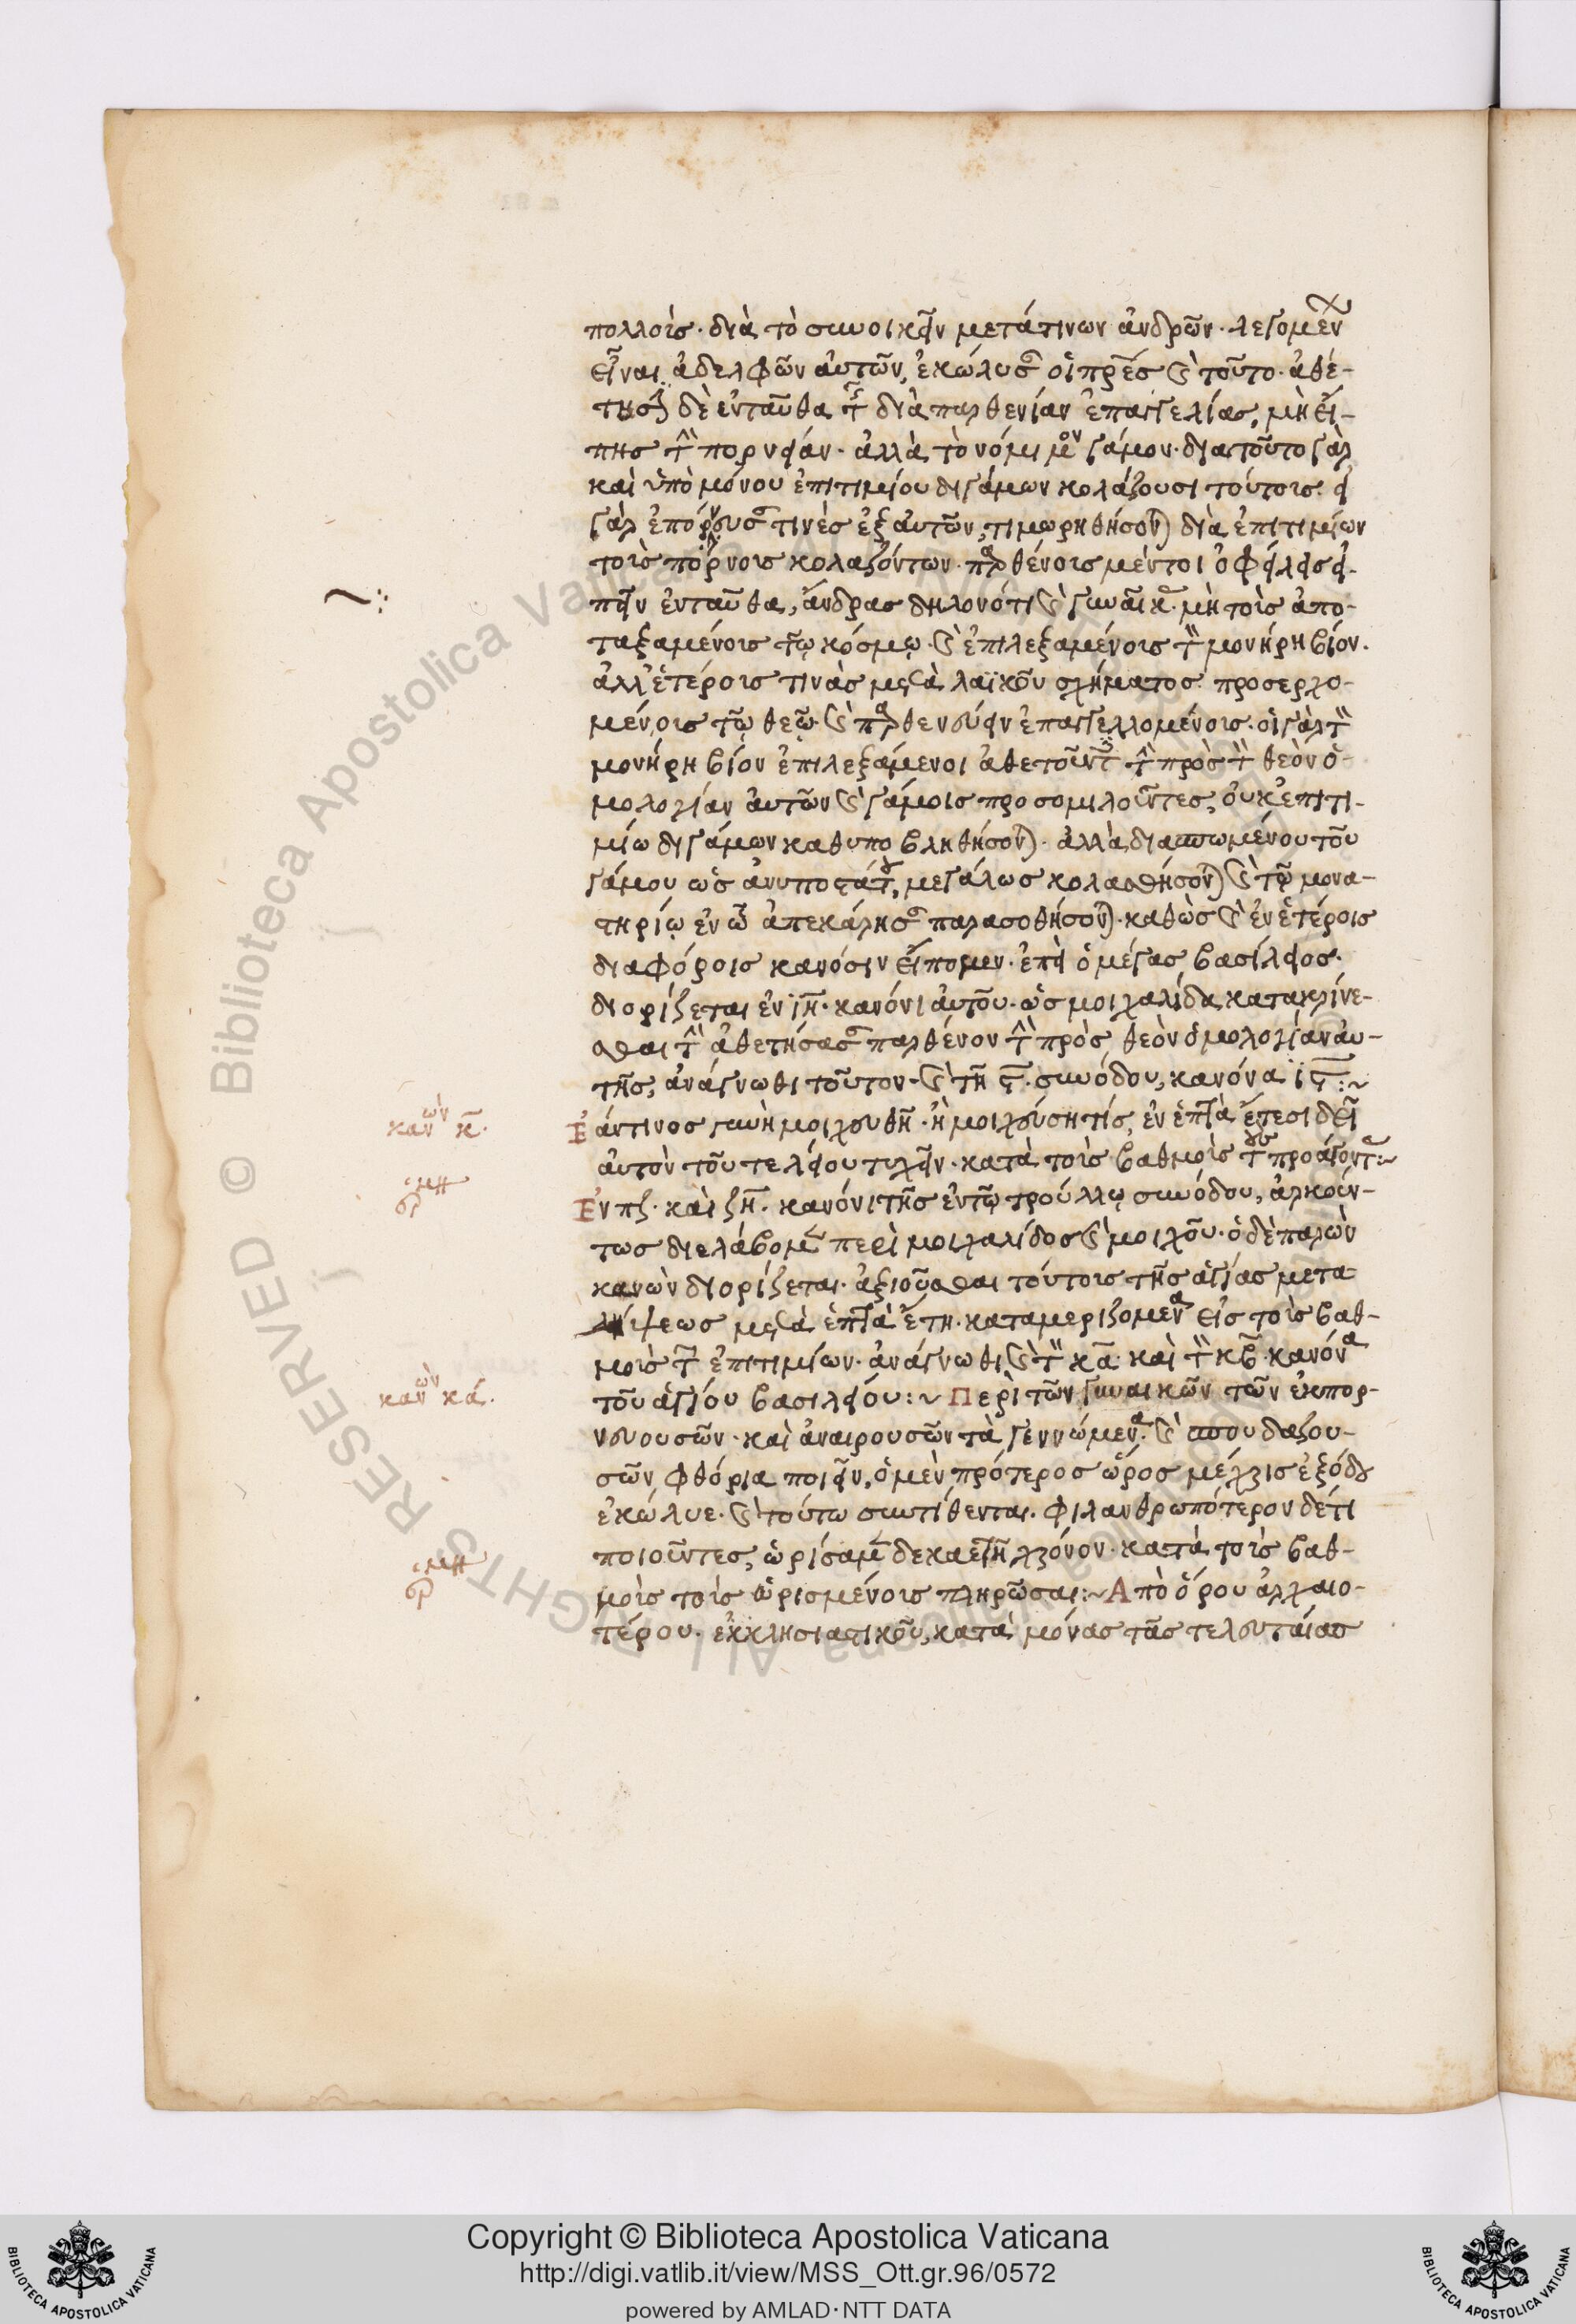 πολλοῖς· διὰ τὸ συνοικεῖν μετά τινων ἀνδρῶν· λεγομένων
εἶναι ἀδελφῶν αὐτῶν, ἐκώλυσαν οἱ πρες καὶ τοῦτο· ἀθέ-
τησιν δὲ ἐνταῦθα τῆς διὰ παρθενίαν ἐπαγγελίας, μὴ εἴ-
πης τὴν πορνείαν· ἀλλὰ τὸ νόμιμον γάμον· διατοῦτο γὰρ
καὶ ὑπὸ μόνου ἐπιτιμίου διγάμων κολάζουσι τούτοις· εἰ
γὰρ ἐπόρνευσαν τινὲς ἐξ αὐτῶν, τιμωρηθήσονται διὰ ἐπιτιμίων
τοῖς πόρνοις κολαζόντων· παρθένοις μέντοι ὀφείλεις εἰ-
πεῖν ἐνταῦθα, ἄνδρας δηλονότι καὶ γυναῖκας· μὴ τοῖς ἀπο-
ταξαμένοις τῷ κόσμῳ· καὶ ἐπιλεξαμένοις τὸν μονήρη βίον·
ἀλλ' ἑτέροις τινὰς μετὰ λαϊκοῦ σχήματος προσερχο-
μένοις τῷ θεῷ· καὶ παρθενεύειν ἐπαγγελλομένοις· οἱ γὰρ τὸν
μονήρη βίον ἐπιλεξάμενοι ἀθετοῦντες τὴν πρὸς τὸν θεὸν ὁ-
μολογίαν αὐτῶν καὶ γάμοις προσομιλοῦντες, οὐκ ἐπιτι-
μίω διγάμων καθυποβληθήσονται· ἀλλὰ διασπωμένου τοῦ
γάμου ὡς ἀνυποστάτου, μεγάλως κολασθήσονται καὶ τῷ μονα-
στηρίῳ ἐν ᾧ ἀπεκάρησαν παραδοθήσονται· καθὼς καὶ ἐν ἑτέροις
διαφόροις κανόσιν εἴπομεν· ἐπεὶ ὁ μέγας βασίλειος·
διορίζεται ἐν ιη· κανόνι αὐτοῦ· ὡς μοιχαλίδα κατακρίνε-
σθαι τὴν ἀθετήσασαν παρθένον τὴν πρὸς θεὸν ὁμολογίαν αὐ-
τῆς, ἀνάγνωθι τοῦτον· καὶ τῆ ϛ· συνόδου, κανόνα ιϛ:~
κανὼν κ·
Ἐάν τινος γυνὴ μοιχευθῆ· ἢ μοιχεύση τίς, ἐν ἑπτὰ ἔτεσι δεῖ
αὐτὸν τοῦ τελείου τυχεῖν· κατὰ τοῖς βαθμοῖς τοὺς προάγοντας:~
Ἐν πζ· καὶ ϟη· κανόνι τῆς ἐν τῷ τρούλλῳ συνόδου, ἀρκούν-
τως διελάβομεν περὶ μοιχαλίδος καὶ μοιχοῦ· ὁ δὲ παρὼν
κανὼν διορίζεται· ἀξιοῦσθαι τούτοις τῆς ἁγίας μετα
λήψεως μετὰ ἑπτὰ ἔτη· καταμεριζομενα εἰς τοῖς βαθ-
μοῖς τῶν ἐπιτιμίων· ἀνάγνωθι καὶ τὸν κα· καὶ τὸν κβ· κανόνα
κανὼν κά.
τοῦ ἁγίου βασιλείου:~ Περὶ τῶν γυναικῶν τῶν ἐκπορ-
νευουσῶν· καὶ ἀναιρουσῶν τὰ γεννώμενα· καὶ σπουδαζου-
σῶν φθόρια ποιεῖν, ὁ μὲν πρότερος ὅρος μέχρις ἐξόδου
ἐκώλυε· καὶ τούτω συντίθενται· φιλανθρωπότερον δέ τι
ποιοῦντες, ὡρίσαμεν δεκαετῆ χρόνον· κατὰ τοῖς βαθ-
μοῖς τοῖς ὡρισμένοις πληρῶσαι:~ Ἀπὸ ὅρου ἀρχαιο-
τέρου· ἐκκλησιαστικοῦ, κατὰ μόνας τὰς τελευταίας
Copyright © Biblioteca Apostolica Vaticana
http://digi.vatlib.it/view/MSS_Ott.gr.96/0572
powered by AMLAD·NTT DATA